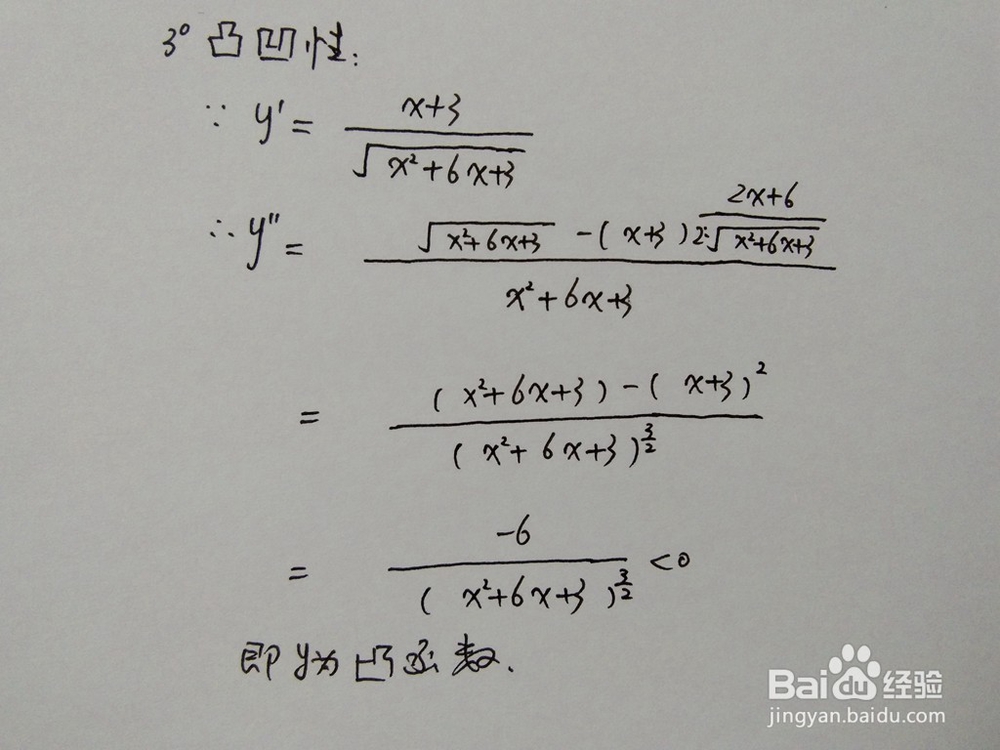 3° 凸凹性:
∵ y' = (x+3)/√(x²+6x+3)
∴ y'' = [√(x²+6x+3) - (x+3)(2x+6)/(2·√(x²+6x+3))]/(x²+6x+3)
= [(x²+6x+3) - (x+3)²]/(x²+6x+3)^(3/2)
= -6/(x²+6x+3)^(3/2) <0
即y为凸函数.
Baidu经验
jingyan.baidu.com